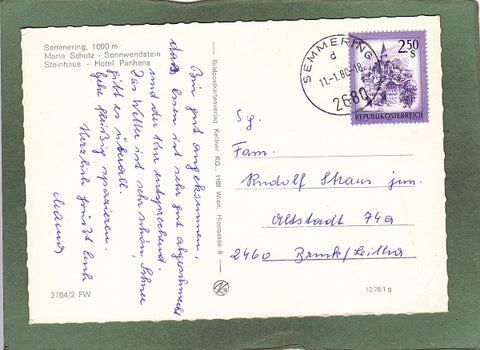 Semmering, 1000 m
Maria Schutz - Sonnwendstein
Steinhaus - Hotel Panhans
Bin gut angekommen,
das Essen ist sehr gut abgeschmeckt
und der Kur entsprechend.
Das Wetter ist sehr schön, Schnee
gibt es überall.
Gehe fleißig spazieren.
Herzlich grüßt Euch
Mama
2764/2 FW
Bildpostkartenverlag Kellner KG., 1180 Wien, Hippgasse 8
SEMMERING
d
11.-1.80-18
2680
2.50 S
REPUBLIK ÖSTERREICH
Sg.
Fam.
Rudolf Straus jun.
Altstadt 74a
2460 Bruck/Leitha
12/76/1 g